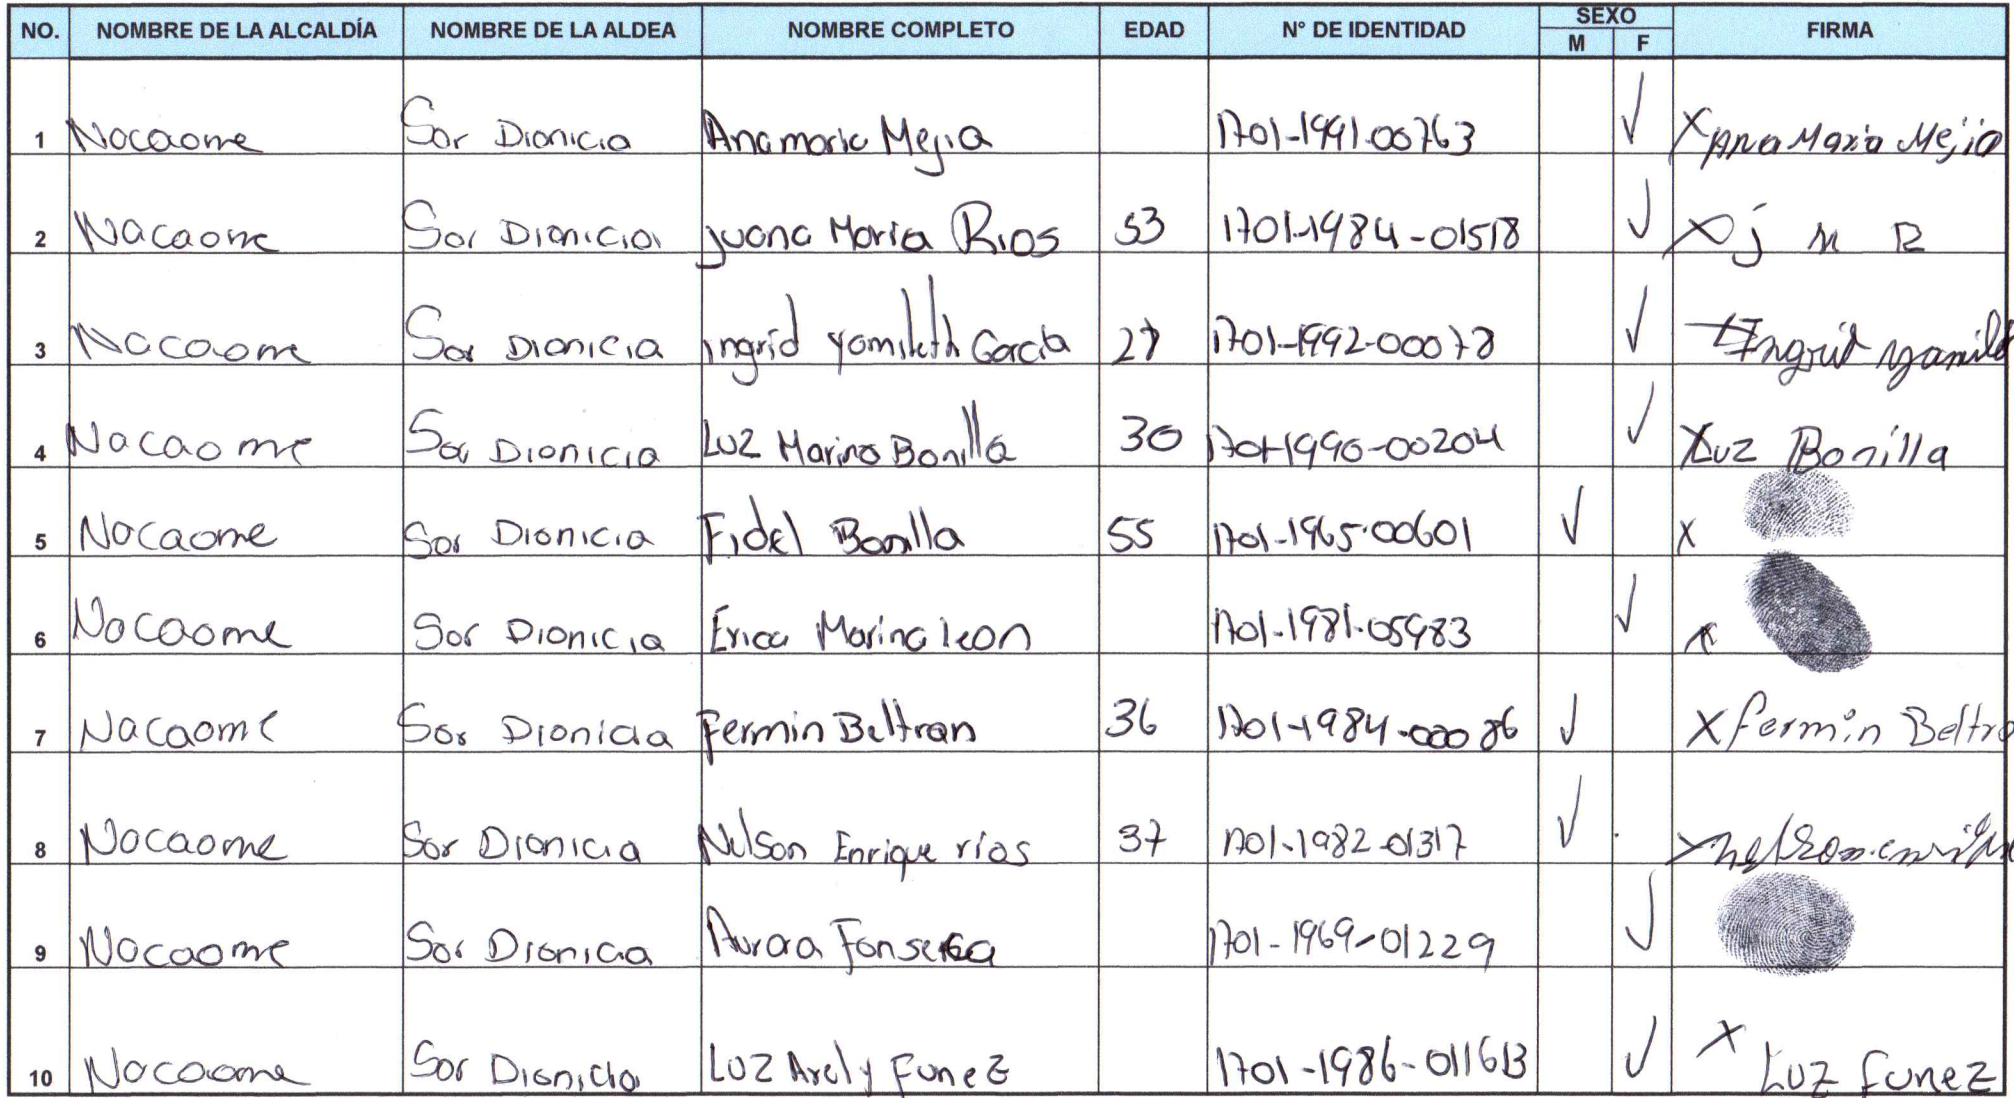 NO. NOMBRE DE LA ALCALDÍA NOMBRE DE LA ALDEA NOMBRE COMPLETO EDAD N° DE IDENTIDAD SEXO FIRMA
M F
1 Nacaome Sor Dionicia Ana maria Mejia 1701-1991-00763 ✓ X Ana Maria Mejia
2 Nacaome Sor Dionicia juana Maria Rios 53 1701-1984-01518 ✓ X j M R
3 Nacaome Sor Dionicia ingrid yamileth Garcia 27 1701-1992-00078 ✓ Ingrid yamile
4 Nacaome Sor Dionicia Luz Marina Bonilla 30 1701-1990-00204 ✓ X Luz Bonilla
5 Nacaome Sor Dionicia Fidel Bonilla 55 1701-1965-00601 ✓ X
6 Nacaome Sor Dionicia Erica Marina leon 1701-1981-05983 ✓ X
7 Nacaome Sor Dionicia Fermin Beltran 36 1701-1984-00086 ✓ X fermin Beltra
8 Nacaome Sor Dionicia Nelson Enrique rios 37 1701-1982-01317 ✓ X nelson enrique
9 Nacaome Sor Dionicia Auraa Fonseca 1701-1969-01229 ✓
10 Nacaome Sor Dionicia Luz Arely Funez 1701-1986-011613 ✓ X Luz funez